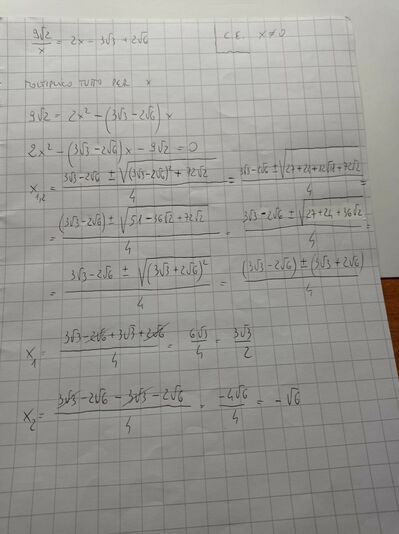 9√2/x = 2x - 3√3 + 2√6 C.E. x≠0
MOLTIPLICO TUTTO PER x
9√2 = 2x² - (3√3 - 2√6) x
2x² - (3√3 - 2√6) x - 9√2 = 0
x₁,₂ = (3√3 - 2√6 ± √((3√3 - 2√6)² + 72√2))/4 = (3√3 - 2√6 ± √(27 + 24 - 12√18 + 72√2))/4 =
= ((3√3 - 2√6) ± √(51 - 36√2 + 72√2))/4 = (3√3 - 2√6 ± √(27 + 24 + 36√2))/4 =
= (3√3 - 2√6 ± √((3√3 + 2√6)²))/4 = ((3√3 - 2√6) ± (3√3 + 2√6))/4
x₁ = (3√3 - 2√6 + 3√3 + 2√6)/4 = 6√3/4 = 3√3/2
x₂ = (3√3 - 2√6 - 3√3 - 2√6)/4 = -4√6/4 = -√6